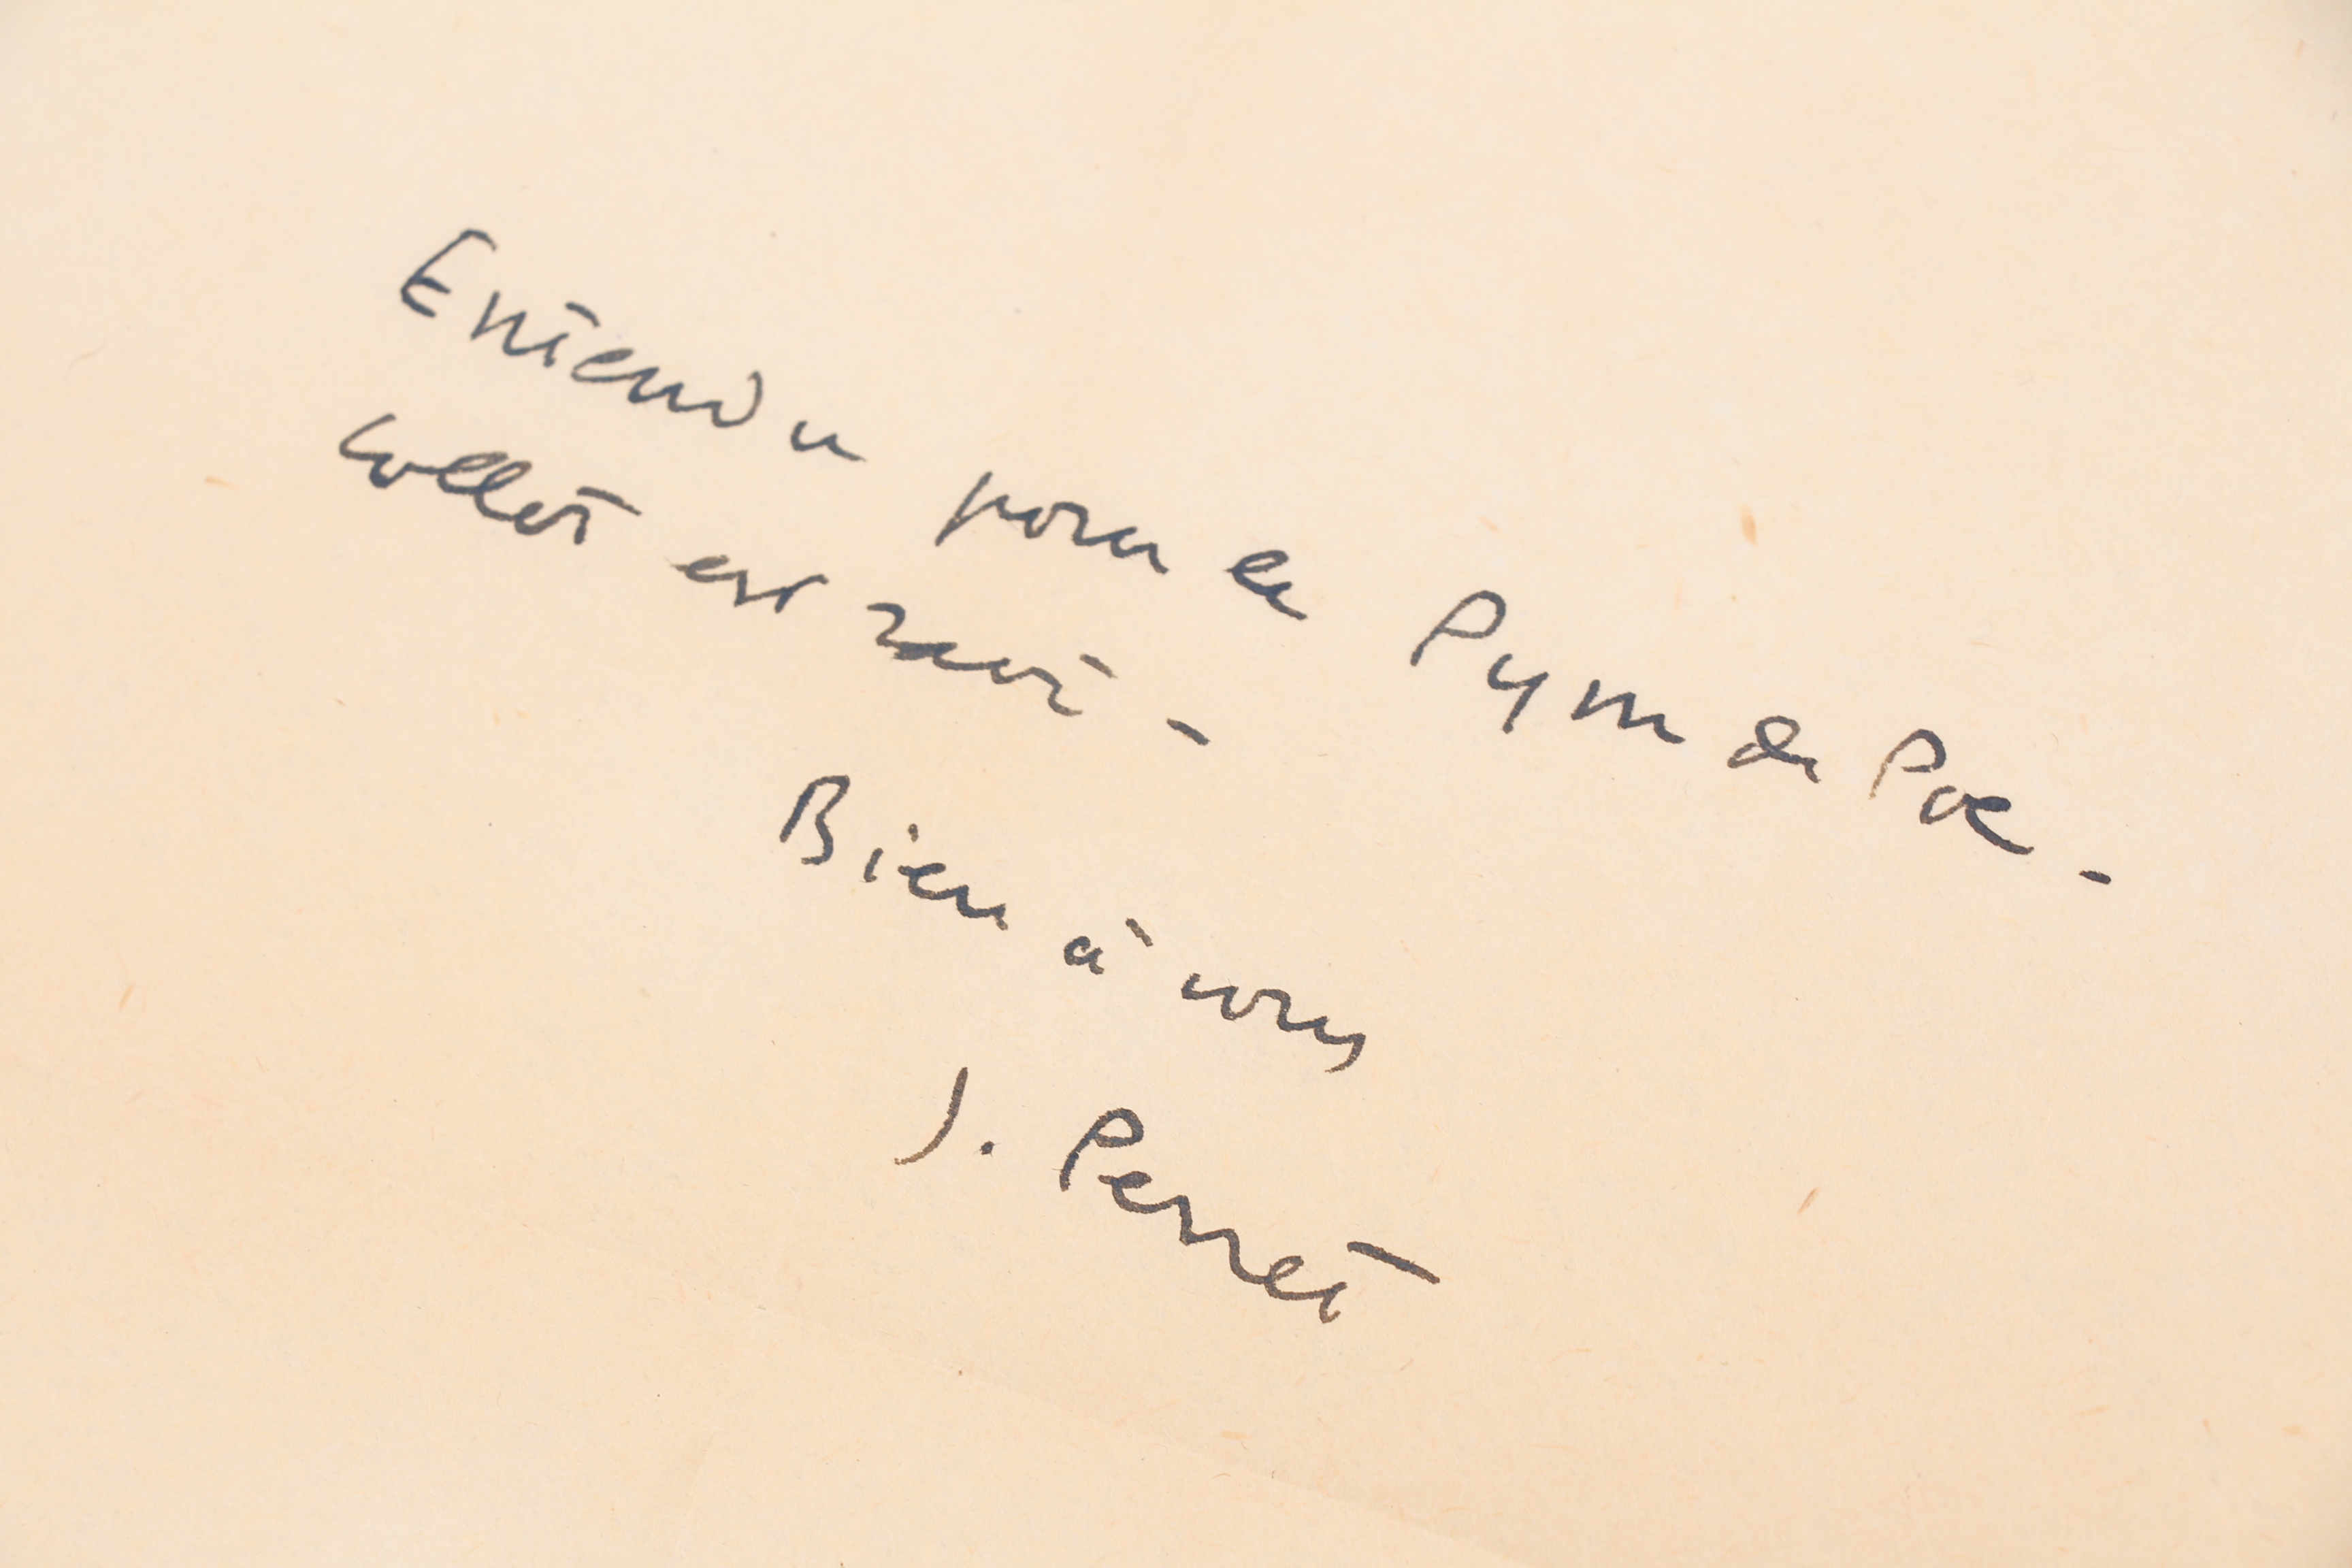 Entendu pour le Pym de Poe -
Collet est ravi -
Bien à vous
J. Perret